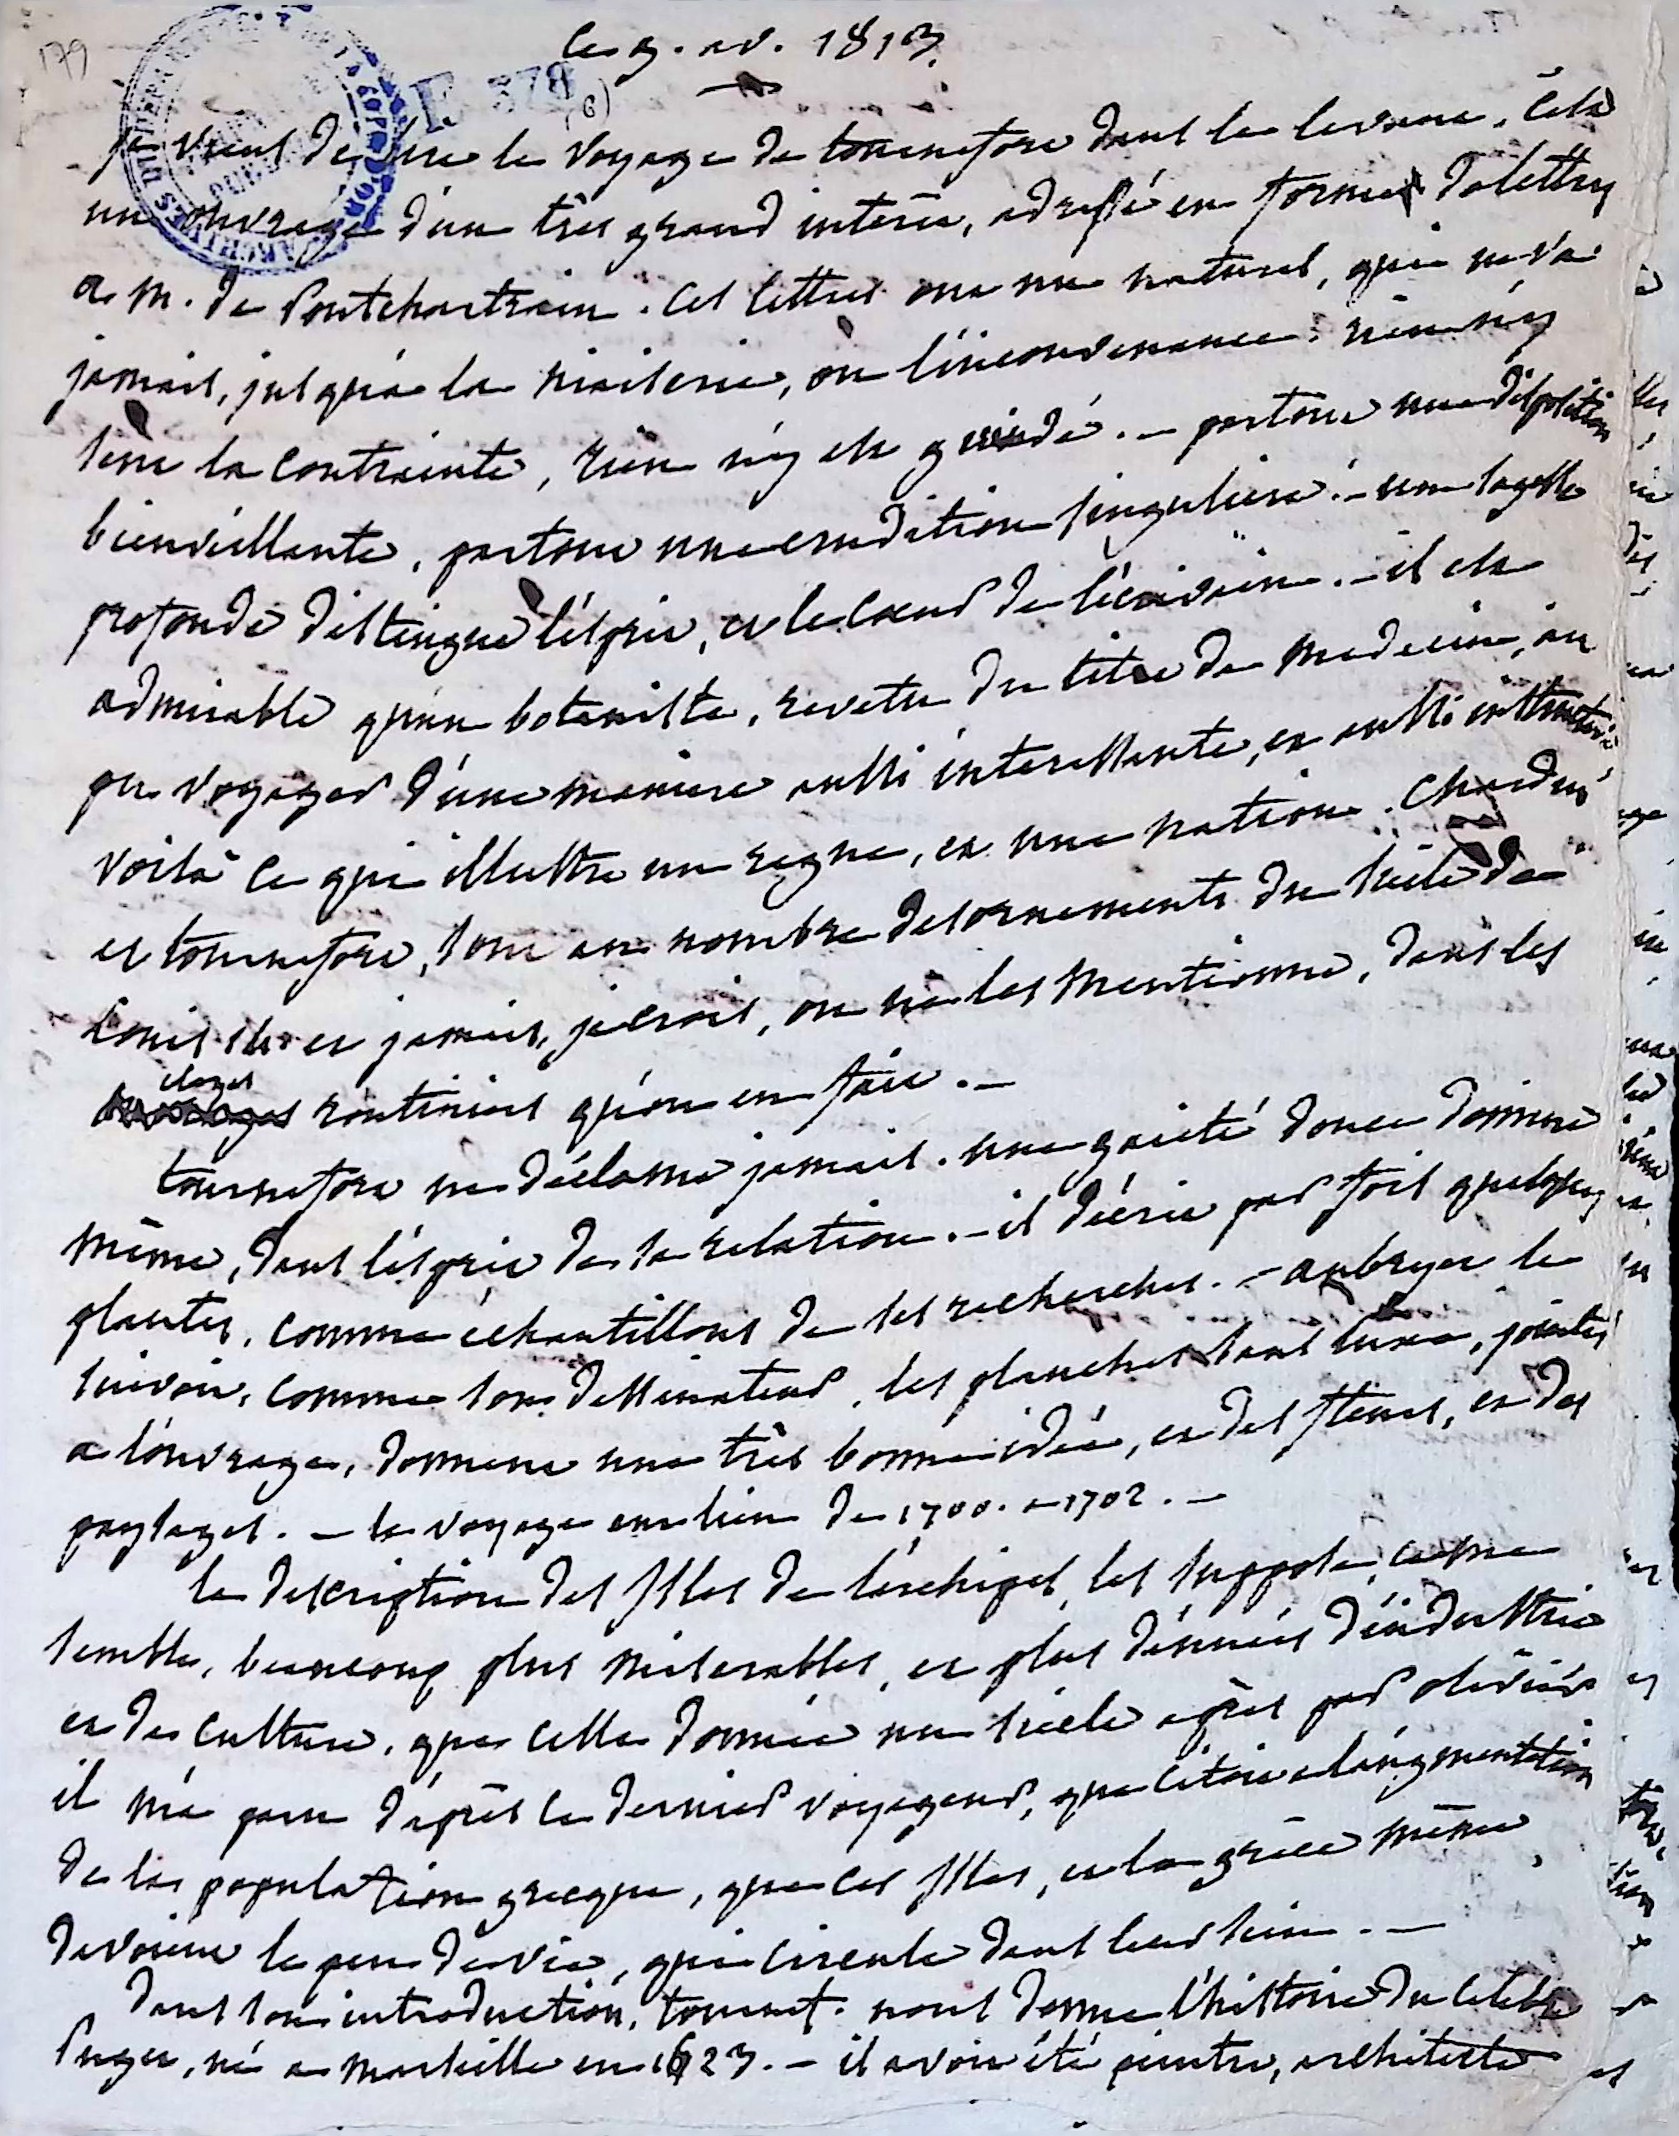 179
ce 3. av. 1813.
E 378
(6)
je viens de lire le voyage de tournefort dans le levant. C'est
un ouvrage d'un très grand intérêt, adressé en forme de lettres
a M. de Pontchartrain. Ces lettres ont un naturel, qui ne va
jamais, jusqu'à la niaiserie, ou l'inconvenance. rien n'y
sent la contrainte, rien n'y est guindé. - partout une disposition
bienveillante, partout une erudition singulière. - une sagesse
profonde distingue l'esprit, et le coeur de l'écrivain. - il est
admirable qu'un botaniste, revetu du titre de medecin, ait
pu voyager d'une maniere aussi interessante, et aussi instructive,
voilà ce qui illustre un regne, et une nation. Chardin
et tournefort, sont au nombre des ornements du siècle de
Louis 14. et jamais, je crois, on ne les mentionne, dans les
eloges routiniers qu'on en fait. -
tournefort ne déclame jamais. une gaieté douce domine
même, dans l'esprit de sa relation. - il décrit par fois quelques
plantes, comme échantillons de ses recherches. - aubryet le
suivoit, comme son dessinateur, les planches sans luxe, jointes
a l'ouvrage, donnent une très bonne idée, et des fleurs, et des
paysages. - le voyage eut lieu de 1700. a 1702. -
la description des Isles de l'archipel, les suppose, ce me
semble, beaucoup plus miserables, et plus dénuées d'industrie
et de culture, que celle donnée un siècle après par olivier
il m'a paru d'après ce dernier voyageur, que c'étoit a l'augmentation
de la population grecque, que ces Isles, et la grèce même,
devoient le peu de vie, qui circule dans leur sein. -
dans son introduction, tournef. nous donne l'histoire du celebre
Puget, né a marseille en 1623. - il avoit été peintre, architecte